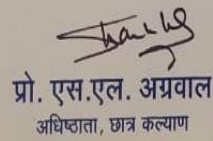 प्रो. एस.एल. अग्रवाल
अधिष्ठाता, छात्र कल्याण